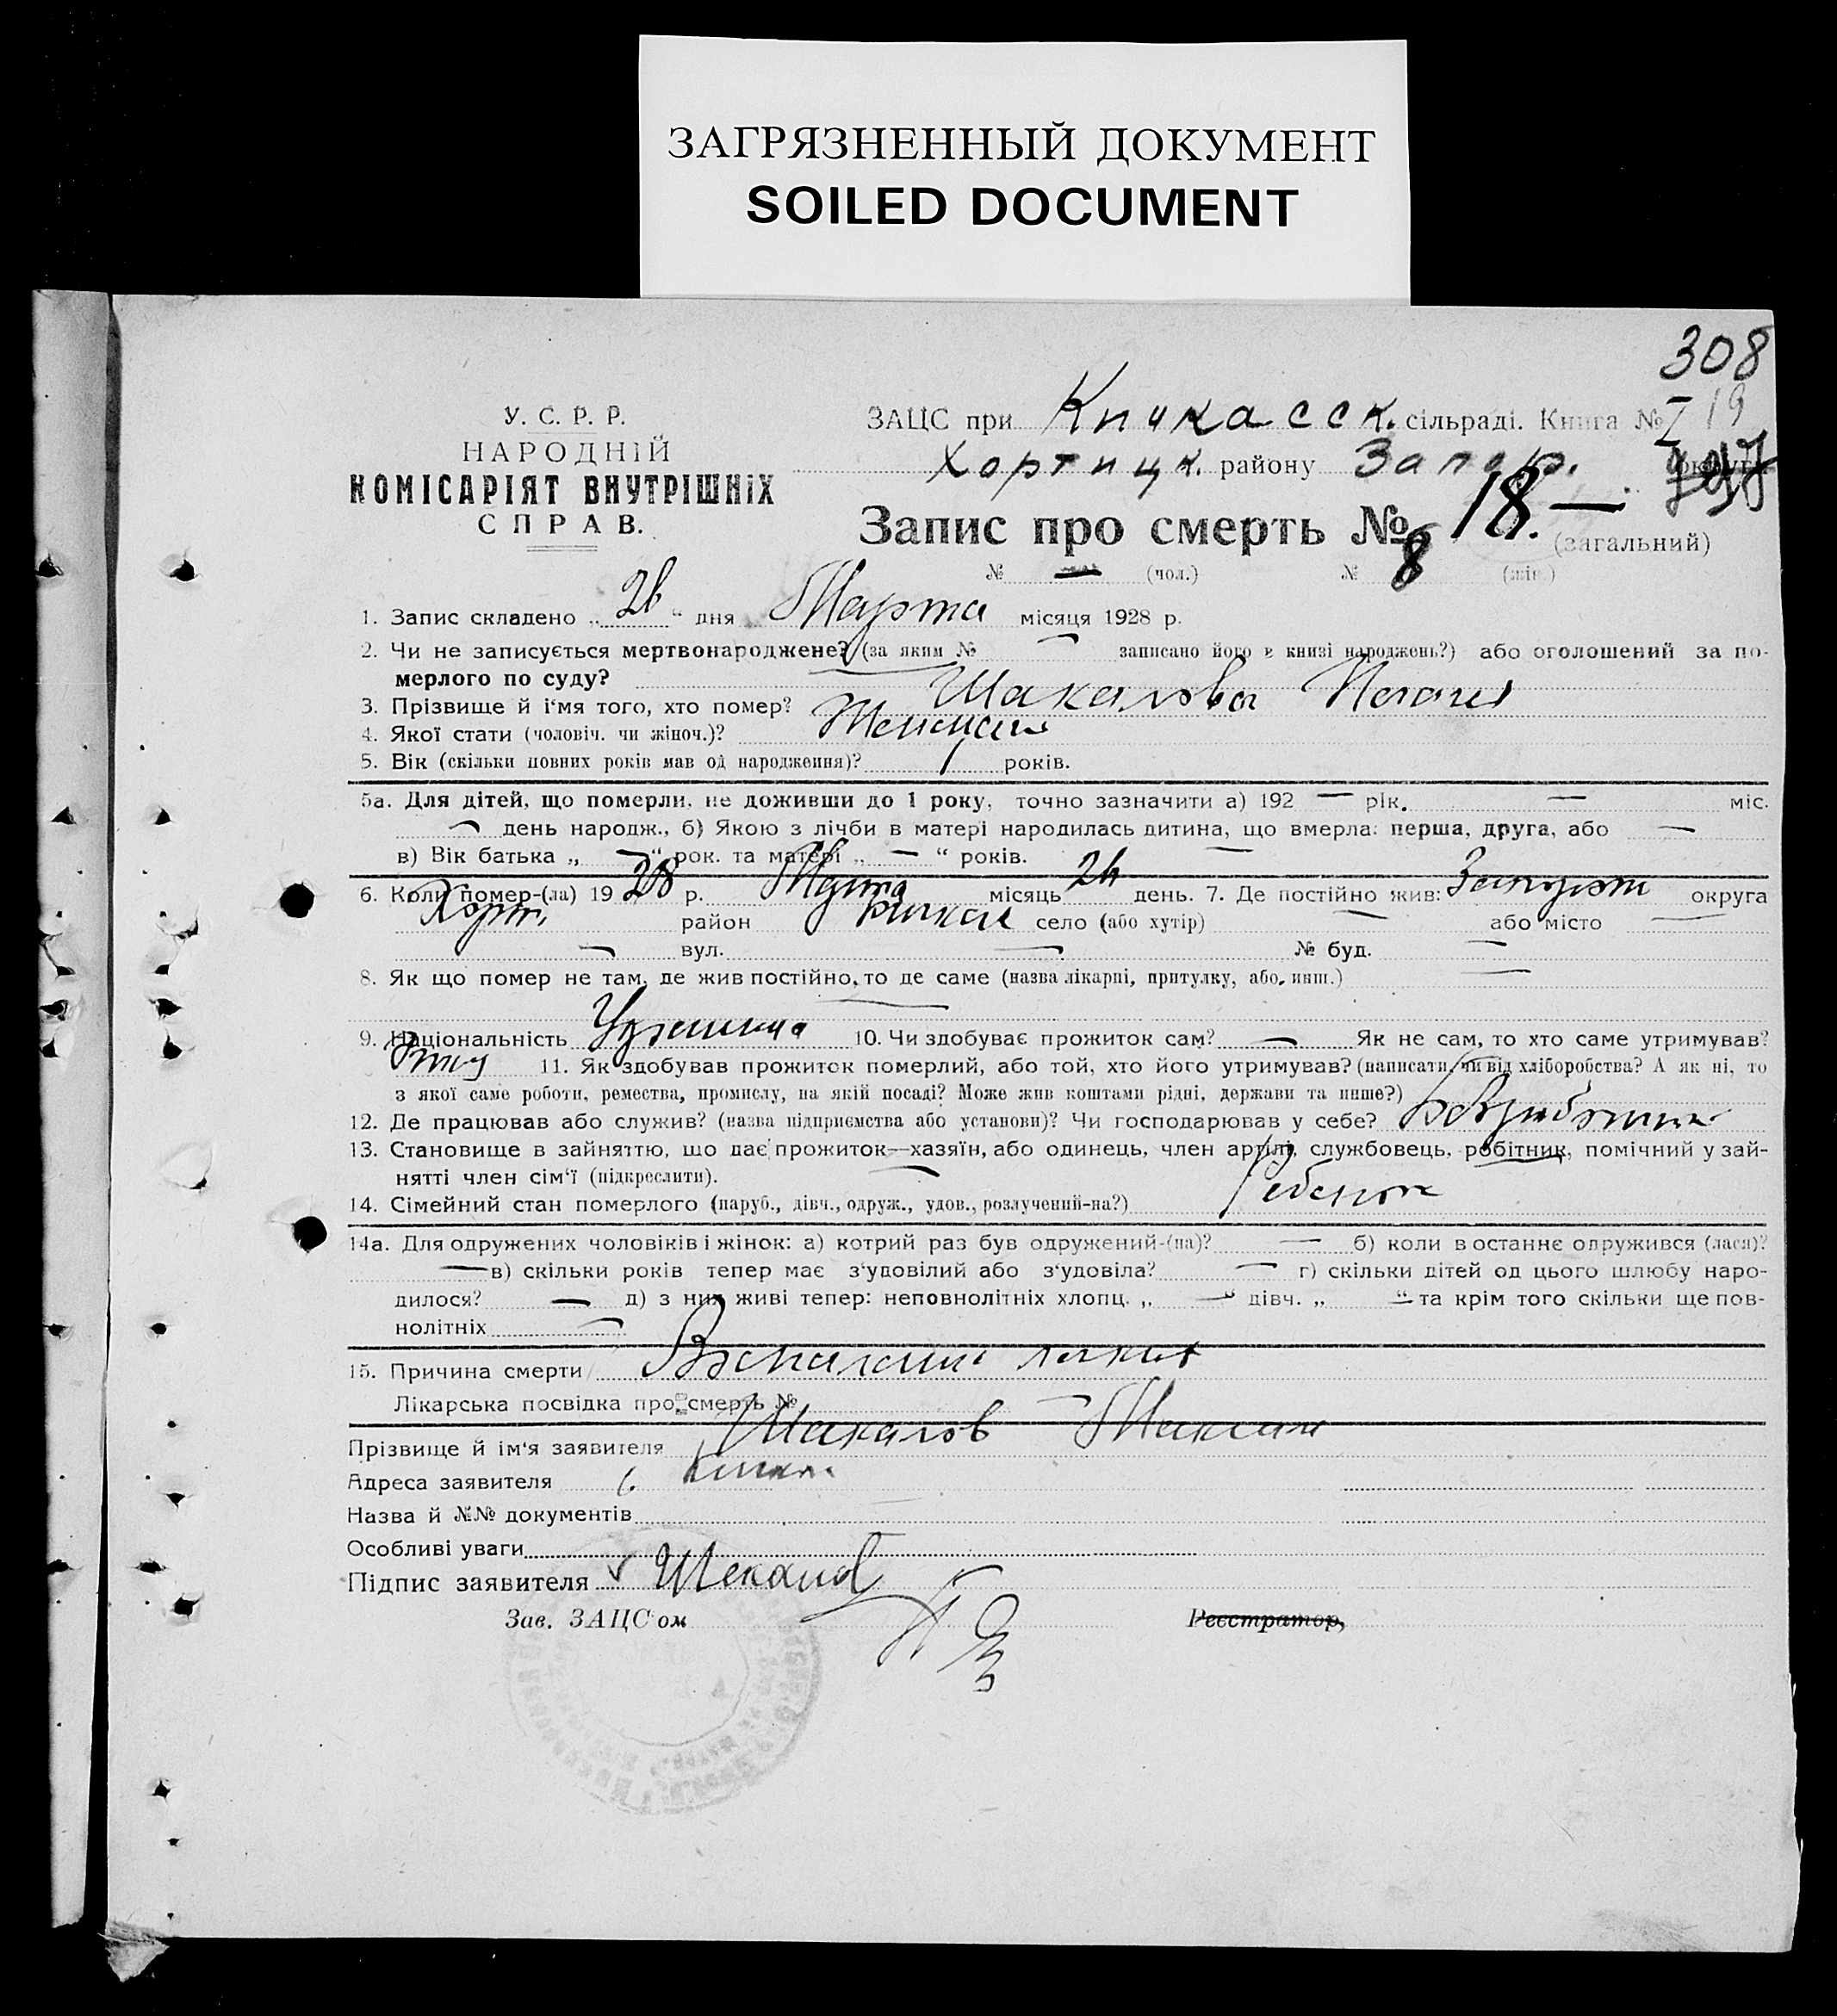 ЗАГРЯЗНЕННЫЙ ДОКУМЕНТ
SOILED DOCUMENT
308
У. С. Р. Р.
НАРОДНІЙ
КОМІСАРІЯТ ВНУТРІШНІХ
СПРАВ.
ЗАЦС при Кичкасск. сільраді. Книга № I 19
Хортицк. району Запор.
Запис про смерть № 18. —
(загальний)
№ — (чол.) № 8 (жін.)
1. Запис складено „ 26 “ дня Марта місяця 1928 р.
2. Чи не записується мертвонароджене? (за яким № — записано його в книзі народжень?) або оголошений за по-
мерлого по суду? —
3. Прізвище й і‘мя того, хто помер? Шакалова
4. Якої стати (чоловіч. чи жіноч.)? Женская
5. Вік (скільки повних років мав од народження)? 1 років.
5а. Для дітей, що померли, не доживши до 1 року, точно зазначити а) 192 — рік. — міс.
— день народж., б) Якою з лічби в матері народилась дитина, що вмерла: перша, друга, або —
в) Вік батька „ — “ рок. та матері „ — “ років. —
6. Коли помер-(ла) 19 28 р. Марта місяць 24 день. 7. Де постійно жив: Запорож округа
Хорт. район Кичкас село (або хутір) — або місто —
— вул. — № буд. —
8. Як що помер не там, де жив постійно, то де саме (назва лікарні, притулку, або, инш.) —
—
9. Національність 10. Чи здобуває прожиток сам? — Як не сам, то хто саме утримував?
Отец 11. Як здобував прожиток померлий, або той, хто його утримував? (написати, чи від хліборобства? А як ні, то
з якої саме роботи, ремества, промислу, на якій посаді? Може жив коштами рідні, держави та инше?)
12. Де працював або служив? (назва підприємства або установи)? Чи господарював у себе?
13. Становище в зайняттю, що дає прожиток—хазяїн, або одинець, член артілі, службовець, робітник, помічний у зай-
нятті член сім‘ї (підкреслити). —
14. Сімейний стан померлого (паруб., дівч., одруж., удов., розлучений-на?) Ребенок
14а. Для одружених чоловіків і жінок: а) котрий раз був одружений-(на)? — б) коли в останнє одружився (лася)?
— в) скільки років тепер має з‘удовілий або з‘удовіла? — г) скільки дітей од цього шлюбу наро-
дилося? — д) з них живі тепер: неповнолітніх хлопц. „ — “ дівч. „ — “ та крім того скільки ще пов-
нолітніх —
15. Причина смерти Воспаление легких
Лікарська посвідка про смерть № —
Прізвище й ім‘я заявителя Шакалов Максим
Адреса заявителя с. Кичкас
Назва й №№ документів
Особливі уваги
Підпис заявителя
Зав. ЗАЦС‘ом Реєстратор,